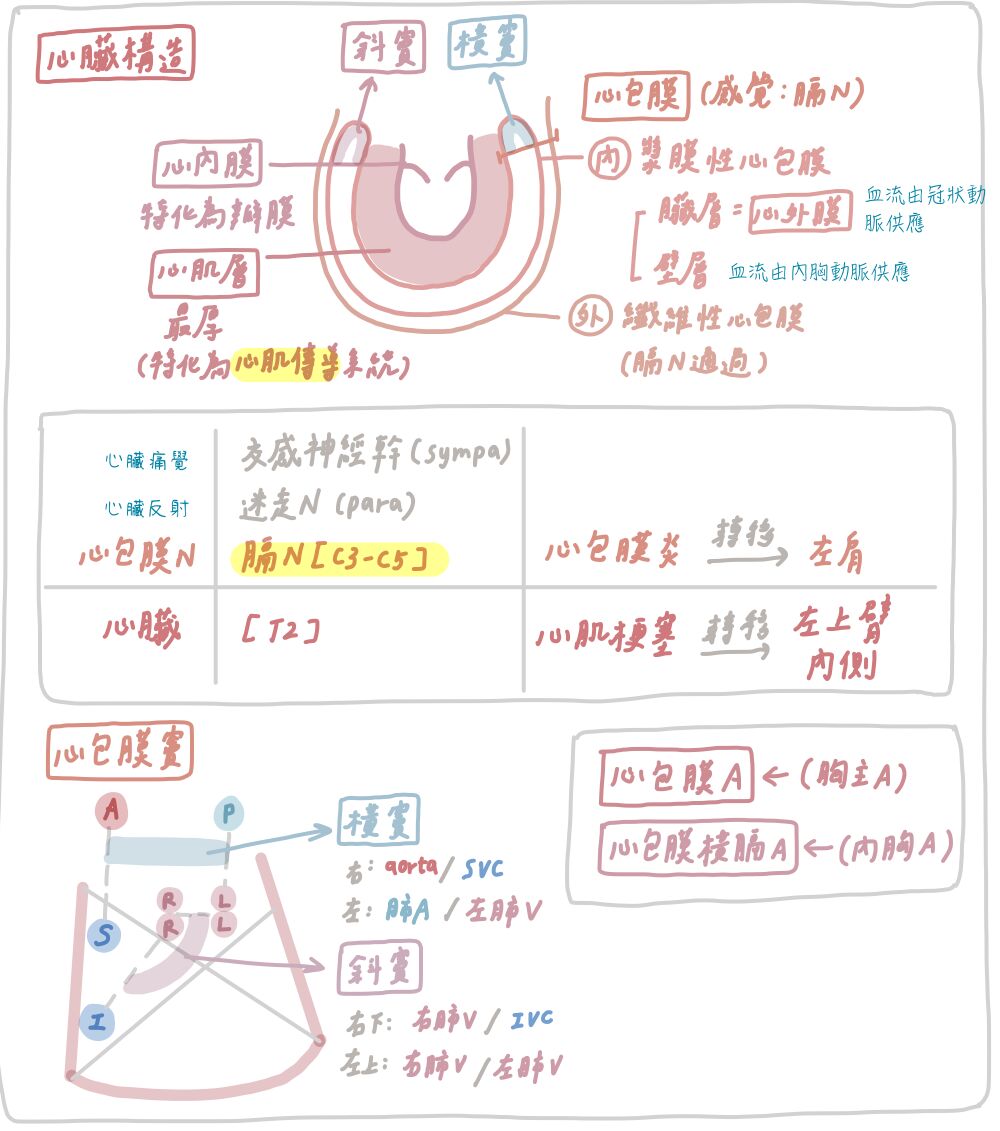 心臟構造
斜竇
橫竇
心包膜 (感覺:膈N)
內 漿膜性心包膜
臟層 = 心外膜
血流由冠狀動
脈供應
壁層 血流由內胸動脈供應
外 纖維性心包膜
(膈N通過)
心內膜
特化為瓣膜
心肌層
最厚
(特化為心肌傳導系統)
心臟痛覺 交感神經幹(sympa)
心臟反射 迷走N (para)
心包膜N 膈N[C3-C5] 心包膜炎 轉移 左肩
心臟 [T2] 心肌梗塞 轉移 左上臂
內側
心包膜竇
A P
R L
R L
S
I
橫竇
右: aorta/SVC
左: 肺A/左肺V
斜竇
右下: 右肺V/IVC
左上: 右肺V/左肺V
心包膜A ← (胸主A)
心包膜橫膈A ← (內胸A)